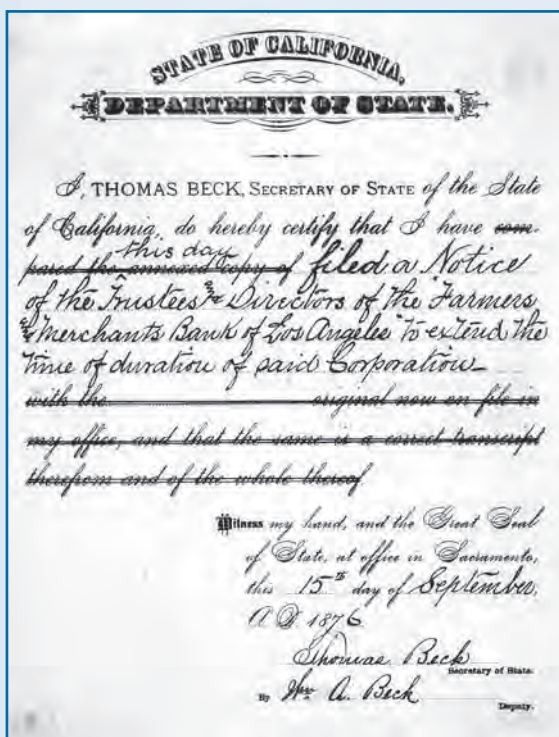 STATE OF CALIFORNIA,
DEPARTMENT OF STATE.
I, THOMAS BECK, SECRETARY OF STATE of the State
of California, do hereby certify that I have com-
this day
pared the annexed copy of filed a Notice
of the Trustees & Directors of the "Farmers
& Merchants Bank of Los Angeles" to extend the
time of duration of said Corporation
with the original now on file in
my office, and that the same is a correct transcript
therefrom and of the whole thereof
Witness my hand, and the Great Seal
of State, at office in Sacramento,
this 15th day of September,
A.D. 1876
Thomas Beck
Secretary of State.
By Wm A. Beck
Deputy.